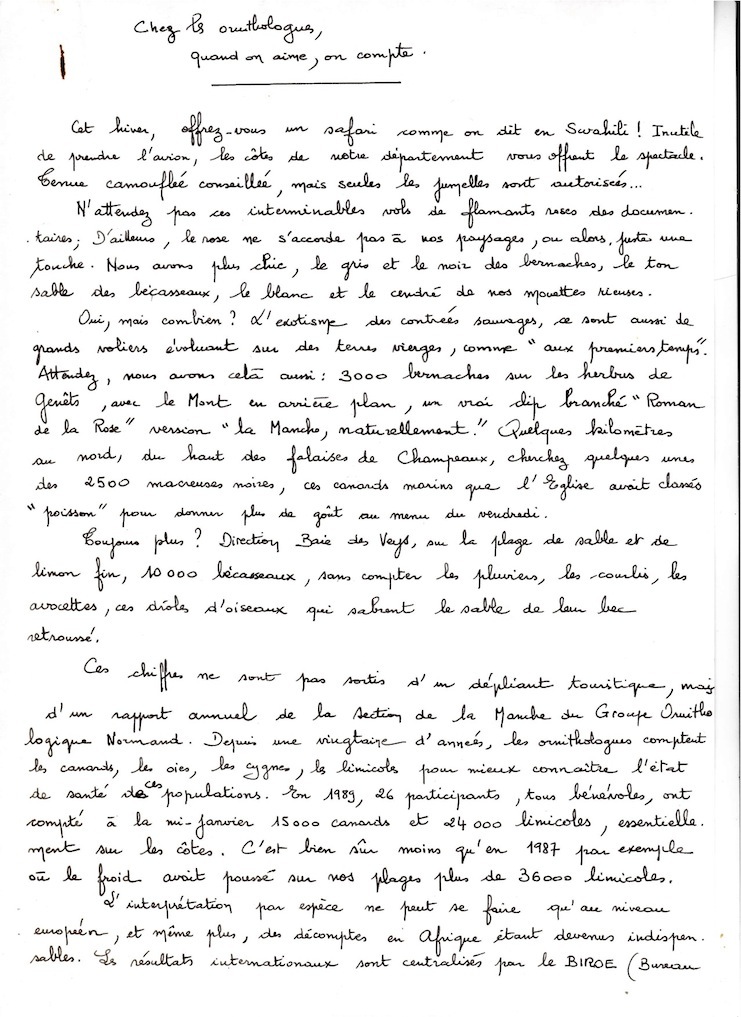 Chez les ornithologues,
quand on aime, on compte.
Cet hiver, offrez-vous un safari comme on dit en Swahili ! Inutile
de prendre l'avion, les côtes de notre département vous offrent le spectacle.
Tenue camouflée conseillée, mais seules les jumelles sont autorisées...
N'attendez pas ces interminables vols de flamants roses des documen.
. taires; D'ailleurs, le rose ne s'accorde pas à nos paysages, ou alors, juste une
touche. Nous avons plus chic, le gris et le noir des bernaches, le ton
sable des bécasseaux, le blanc et le cendré de nos mouettes rieuses.
Oui, mais combien ? L'exotisme des contrées sauvages, ce sont aussi de
grands voliers évoluant sur des terres vierges, comme "aux premiers temps".
Attendez, nous avons celà aussi : 3000 bernaches sur les herbus de
Genêts, avec le Mont en arrière plan, un vrai clip branché "Roman
de la Rose" version "la Manche, naturellement." Quelques kilomètres
au nord, du haut des falaises de Champeaux, cherchez quelques unes
des 2500 macreuses noires, ces canards marins que l'Eglise avait classés
"poisson" pour donner plus de goût au menu du vendredi.
Toujours plus ? Direction Baie des Veys, sur la plage de sable et de
limon fin, 10 000 bécasseaux, sans compter les pluviers, les courlis, les
avocettes, ces drôles d'oiseaux qui sabrent le sable de leur bec
retroussé.
Ces chiffres ne sont pas sortis d'un dépliant touristique, mais
d'un rapport annuel de la section de la Manche du Groupe Ornitho
logique Normand. Depuis une vingtaine d'années, les ornithologues comptent
les canards, les oies, les cygnes, les limicoles pour mieux connaître l'état
de santé de ces populations. En 1989, 26 participants, tous bénévoles, ont
compté à la mi-janvier 15000 canards et 24 000 limicoles, essentielle.
ment sur les côtes. C'est bien sûr moins qu'en 1987 par exemple
où le froid avait poussé sur nos plages plus de 36000 limicoles.
L'interprétation par espèce ne peut se faire qu'au niveau
européen, et même plus, des décomptes en Afrique étant devenus indispen.
sables. Les résultats internationaux sont centralisés par le BIROE (Bureau